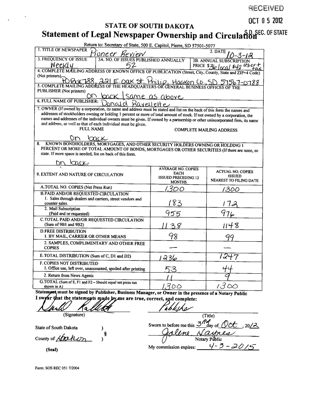 RECEIVED
OCT 05 2012
S.D. SEC. OF STATE
STATE OF SOUTH DAKOTA
Statement of Legal Newspaper Ownership and Circulation
Return to: Secretary of State, 500 E. Capitol, Pierre, SD 57501-5077
1. TITLE OF NEWSPAPER Pioneer Review
2. DATE 10-3-12
3. FREQUENCY OF ISSUE Weekly
3A. NO. OF ISSUES PUBLISHED ANNUALLY 52
3B. ANNUAL SUBSCRIPTION PRICE
4. COMPLETE MAILING ADDRESS OF KNOWN OFFICE OF PUBLICATION (Street, City, County, State and ZIP+4 Code) (Not printers)
PO Box 788, 221 E. Oak St. Philip, Haakon Co. SD 57567-0788
5. COMPLETE MAILING ADDRESS OF THE HEADQUARTERS OR GENERAL BUSINESS OFFICES OF THE PUBLISHER (Not printers)
on back same as above
6. FULL NAME OF PUBLISHER: Donald Ravellette
7. OWNER (If owned by a corporation, its name and address must be stated and list on the back of this form the names and addresses of stockholders owning or holding 1 percent or more of total amount of stock. If not owned by a corporation, the names and addresses of the individual owners must be given. If owned by a partnership or other unincorporated firm, its name and address, as well as that of each individual must be given.
FULL NAME COMPLETE MAILING ADDRESS
On back
8. KNOWN BONDHOLDERS, MORTGAGES, AND OTHER SECURITY HOLDERS OWNING OR HOLDING 1 PERCENT OR MORE OF TOTAL AMOUNT OF BONDS, MORTGAGES OR OTHER SECURITIES (If there are none, so state. If more space is needed, list on back of this form.
on back
9. EXTENT AND NATURE OF CIRCULATION
AVERAGE NO. COPIES EACH ISSUED PRECEDING 12 MONTHS
ACTUAL NO. COPIES ISSUED NEAREST TO FILING DATE
A. TOTAL NO. COPIES (Net Press Run) 1300 1300
B. PAID AND/OR REQUESTED CIRCULATION
1. Sales through dealers and carriers, street vendors and counter sales 183 172
2. Mail Subscription (Paid and or requested) 955 976
C. TOTAL PAID AND/OR REQUESTED CIRCULATION (Sum of 9B1 and 9B2) 1138 1148
D. FREE DISTRIBUTION
1. BY MAIL, CARRIER OR OTHER MEANS 98 99
2. SAMPLES, COMPLIMENTARY AND OTHER FREE COPIES
E. TOTAL DISTRIBUTION (Sum of C, D1 and D2) 1236 1247
F. COPIES NOT DISTRIBUTED
1. Office use, left over, unaccounted, spoiled after printing 53 44
2. Return from News Agents 11 9
G. TOTAL (Sum of E, F1 and F2 - Should equal net press run shown in A) 1300 1300
Statement must be signed by Publisher, Business Manager, or Owner in the presence of a Notary Public
I swear that the statements made by me are true, correct, and complete:
Publisher
(Signature) (Title)
State of South Dakota )
§
County of Haakon )
(Seal)
Sworn to before me this 3rd day of Oct, 2012
Notary Public
My commission expires: 4-3-2015
Form: SOS REC 051 7/2004